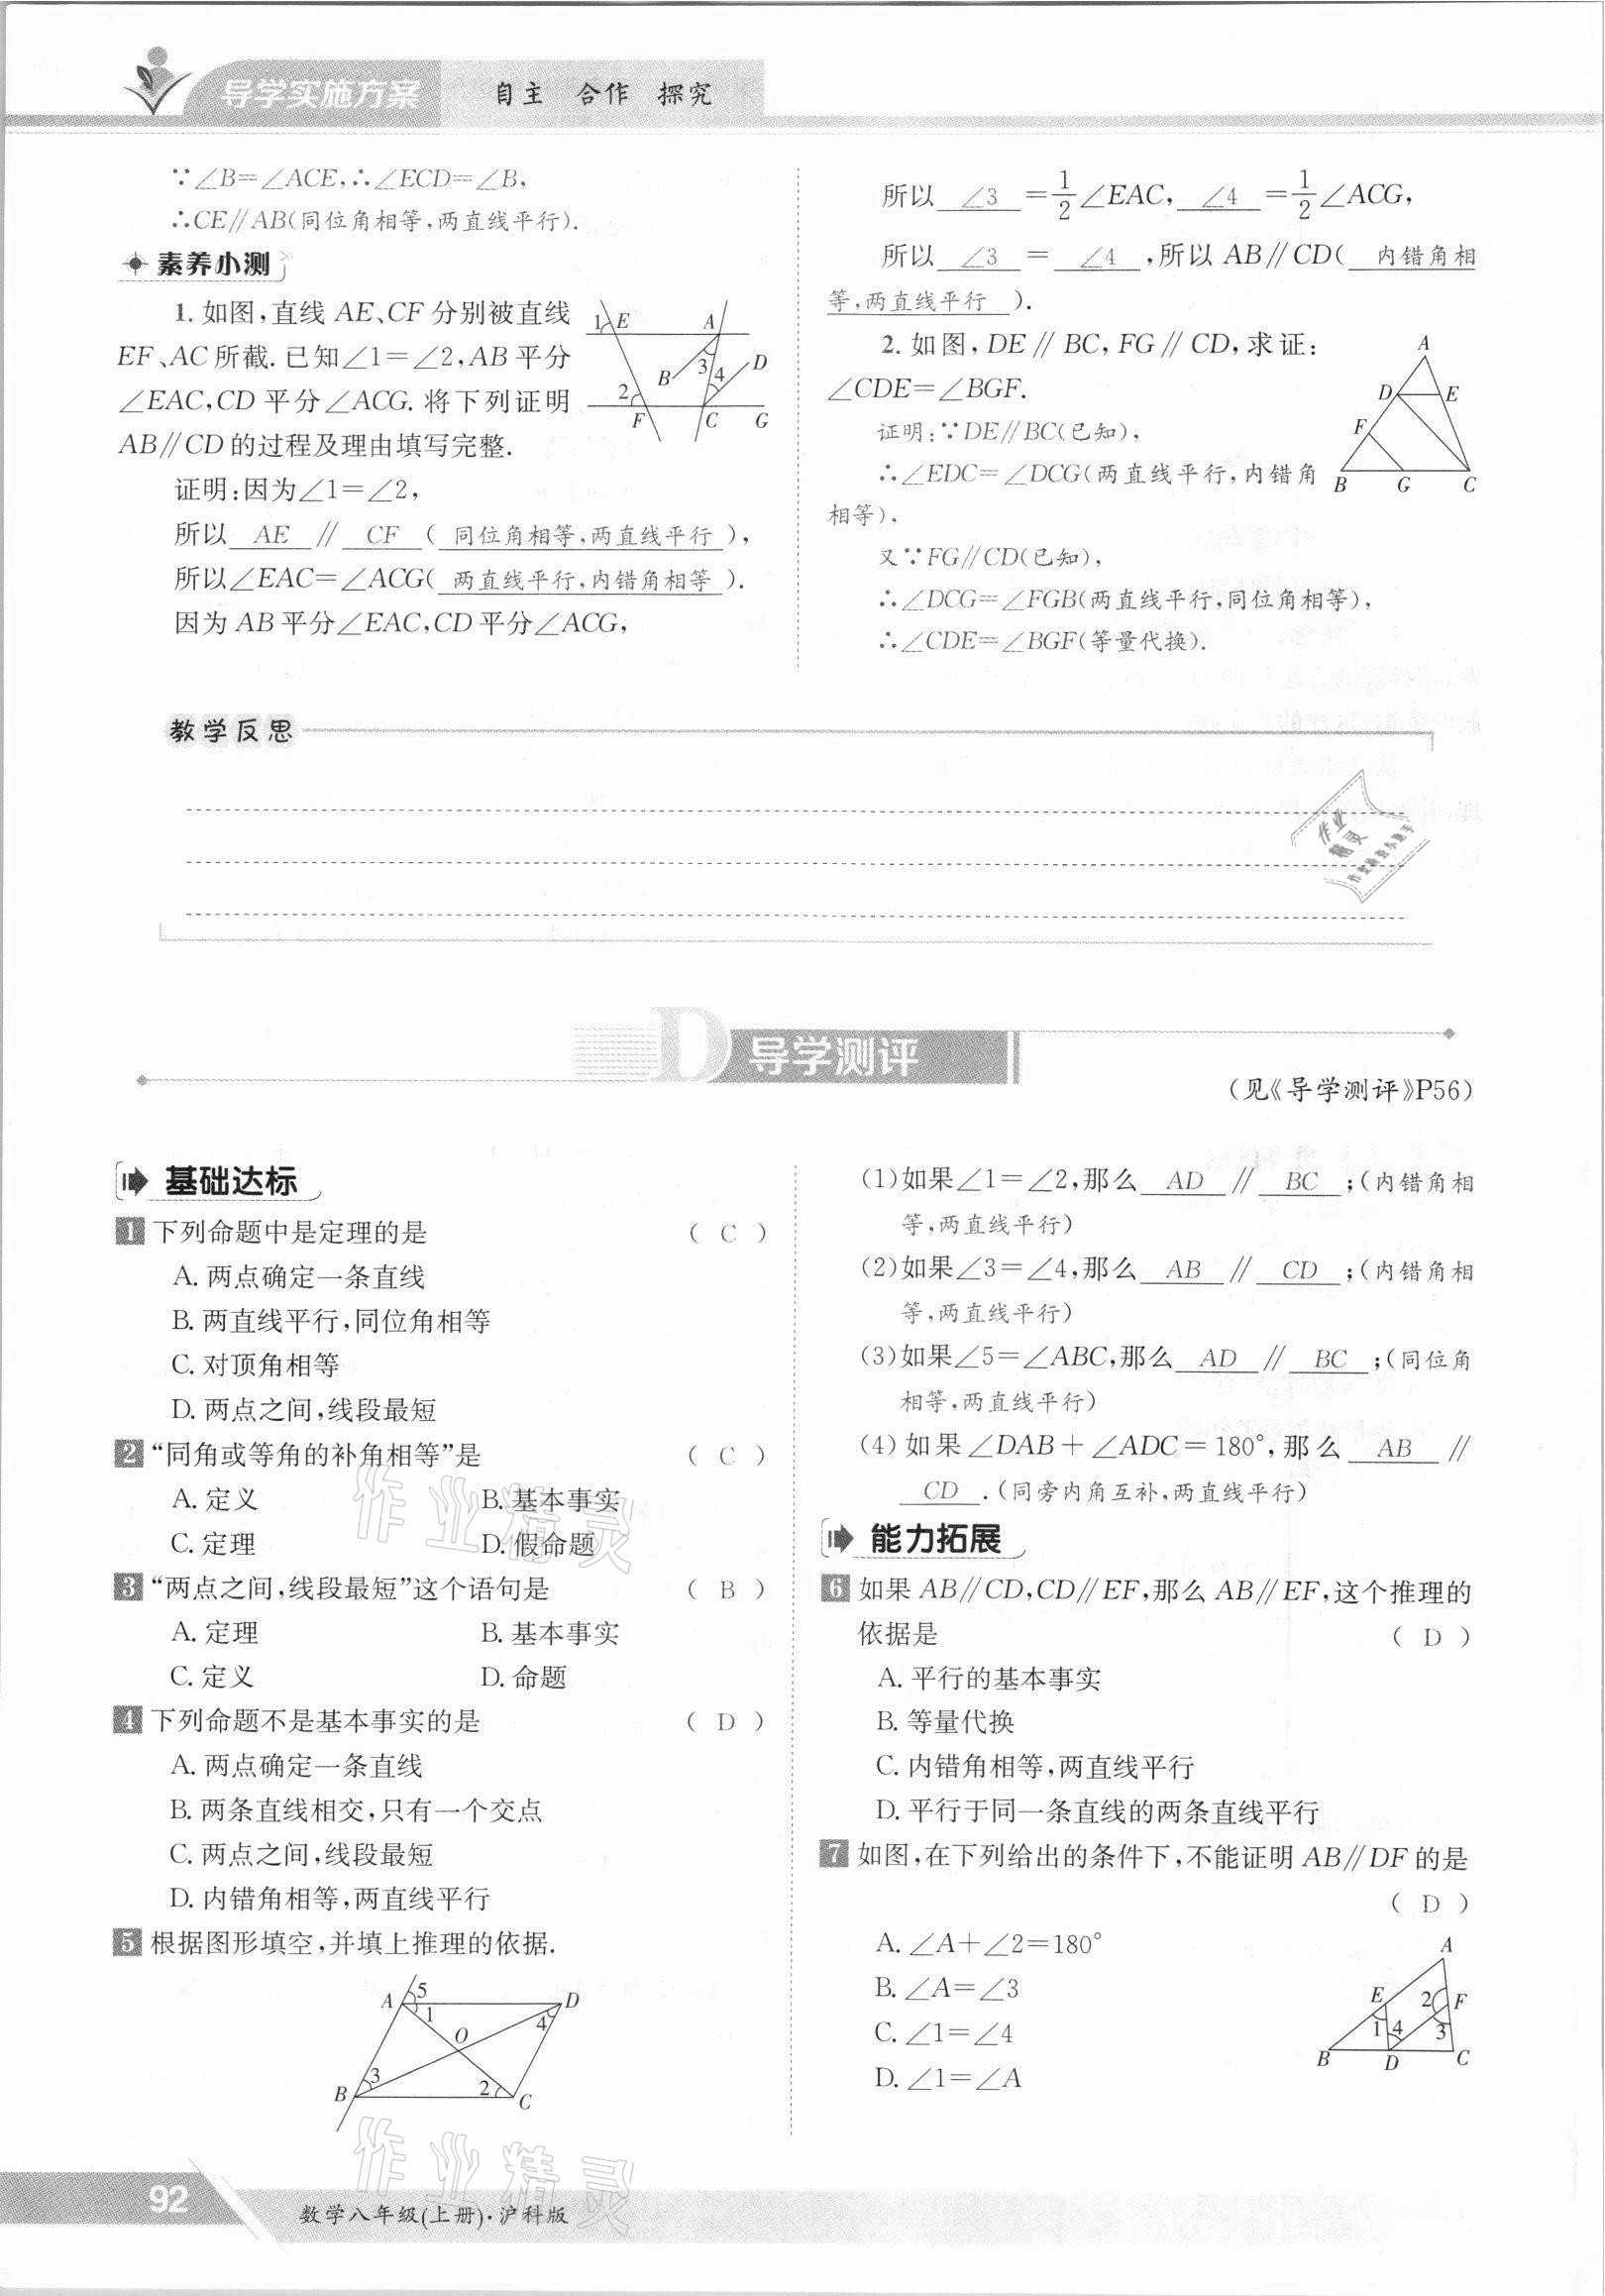 导学实施方案 自主 合作 探究
∵∠B=∠ACE,∴∠ECD=∠B,
∴CE∥AB(同位角相等,两直线平行).
素养小测
1. 如图,直线 AE、CF 分别被直线
EF、AC 所截. 已知∠1=∠2,AB 平分
∠EAC,CD 平分∠ACG. 将下列证明
AB∥CD 的过程及理由填写完整.
1 E A
3 4 D
B
2
F C G
证明:因为∠1=∠2,
所以 AE ∥ CF ( 同位角相等,两直线平行 ),
所以∠EAC=∠ACG( 两直线平行,内错角相等 ).
因为 AB 平分∠EAC,CD 平分∠ACG,
所以 ∠3 =1/2∠EAC, ∠4 =1/2∠ACG,
所以 ∠3 = ∠4 ,所以 AB∥CD( 内错角相
等,两直线平行 ).
2. 如图,DE∥BC,FG∥CD,求证:
∠CDE=∠BGF.
A
D E
F
B G C
证明:∵DE∥BC(已知),
∴∠EDC=∠DCG(两直线平行,内错角
相等),
又∵FG∥CD(已知),
∴∠DCG=∠FGB(两直线平行,同位角相等),
∴∠CDE=∠BGF(等量代换).
教学反思
作业
精灵
作业检查小助手
D 导学测评
(见《导学测评》P56)
基础达标
1 下列命题中是定理的是 ( C )
A. 两点确定一条直线
B. 两直线平行,同位角相等
C. 对顶角相等
D. 两点之间,线段最短
2 “同角或等角的补角相等”是 ( C )
A. 定义 B. 基本事实
C. 定理 D. 假命题
3 “两点之间,线段最短”这个语句是 ( B )
A. 定理 B. 基本事实
C. 定义 D. 命题
4 下列命题不是基本事实的是 ( D )
A. 两点确定一条直线
B. 两条直线相交,只有一个交点
C. 两点之间,线段最短
D. 内错角相等,两直线平行
5 根据图形填空,并填上推理的依据.
A 5 D
1 4
O
3 2
B C
(1)如果∠1=∠2,那么 AD ∥ BC ;(内错角相
等,两直线平行)
(2)如果∠3=∠4,那么 AB ∥ CD ;(内错角相
等,两直线平行)
(3)如果∠5=∠ABC,那么 AD ∥ BC ;(同位角
相等,两直线平行)
(4)如果∠DAB+∠ADC=180°,那么 AB ∥
CD .(同旁内角互补,两直线平行)
能力拓展
6 如果 AB∥CD,CD∥EF,那么 AB∥EF,这个推理的
依据是 ( D )
A. 平行的基本事实
B. 等量代换
C. 内错角相等,两直线平行
D. 平行于同一条直线的两条直线平行
7 如图,在下列给出的条件下,不能证明 AB∥DF 的是
( D )
A. ∠A+∠2=180°
B. ∠A=∠3
C. ∠1=∠4
D. ∠1=∠A
A
E 2 F
1 4 3
B D C
作业精灵
作业精灵
92 数学八年级(上册)·沪科版